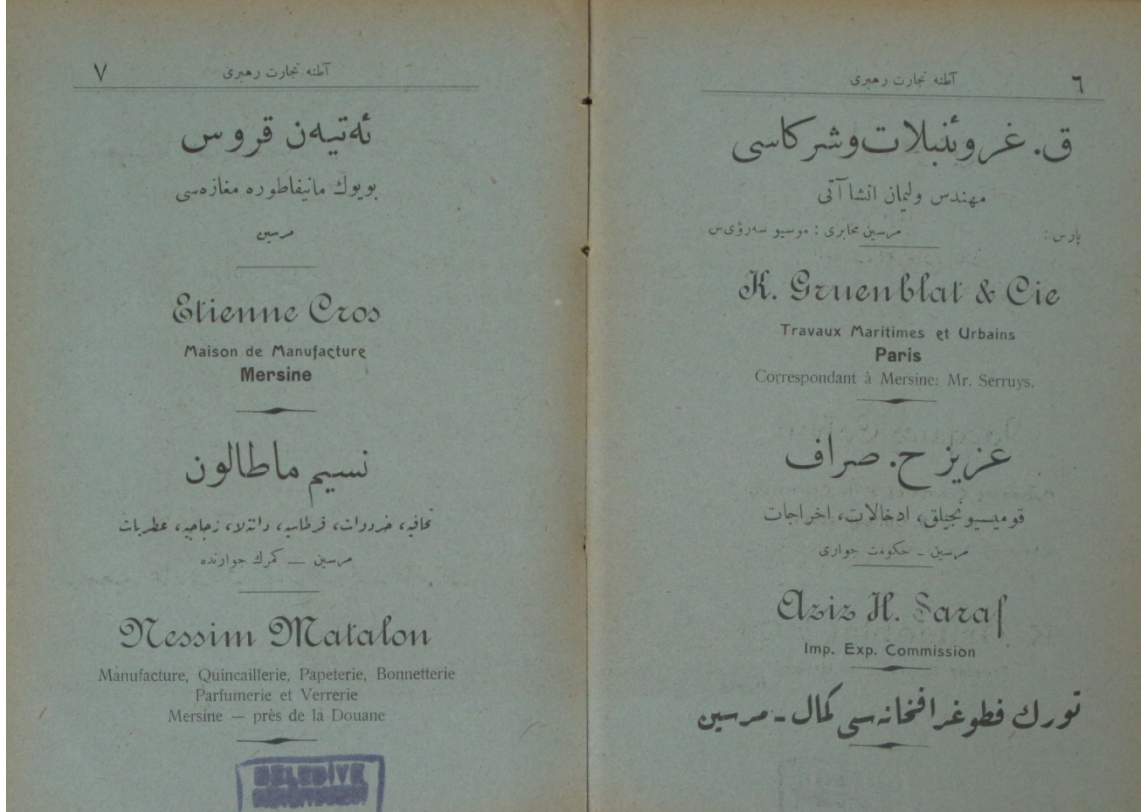 ٦ آطنه تجارت رهبرى
ق. غروئنبلات وشركاسى
مهندس وليمان انشاآتى
پارس : مرسين مخابرى : موسيو سه‌رؤى‌س
K. Gruenblat & Cie
Travaux Maritimes et Urbains
Paris
Correspondant à Mersine: Mr. Serruys.
عزيز ح. صراف
قوميسيونجيلق، ادخالات، اخراجات
مرسين ـ حكومت جوارى
Aziz H. Saraf
Imp. Exp. Commission
تورك فطوغرافخانه‌سى كمال ـ مرسين
آطنه تجارت رهبرى ٧
ئه‌تيه‌ن قروس
بويوك مانيفاطوره مغازه‌سى
مرسين
Etienne Cros
Maison de Manufacture
Mersine
نسيم ماطالون
تحافيه، خردوات، قرطاسيه، دانته‌لا، زجاجيه، عطريات
مرسين — كمرك جوارنده
Nessim Matalon
Manufacture, Quincaillerie, Papeterie, Bonnetterie
Parfumerie et Verrerie
Mersine — près de la Douane
BELEDİYE